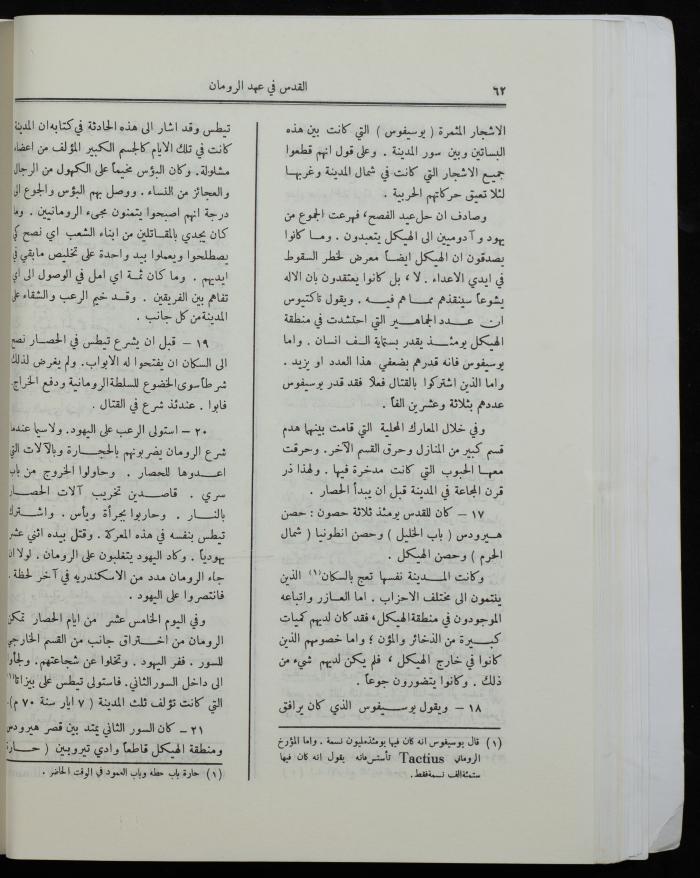 القدس في عهد الرومان
٦٢
الاشجار المثمرة ( يوسيفوس ) التي كانت بين هذه
البساتين وبين سور المدينة . وعلى قول انهم قطعوا
جميع الاشجار التي كانت في شمال المدينة وغربها
لئلا تعيق حركاتهم الحربية .
وصادف ان حل عيد الفصح، فهرعت الجموع من
يهود و آدوميين الى الهيكل يتعبدون . وما كانوا
يصدقون ان الهيكل ايضاً معرض لخطر السقوط
في ايدي الاعداء . لا ، بل كانوا يعتقدون بان الاله
يشوعاً سينقذهم مما هم فيه . ويقول تاكتيوس
ان عدد الجماهير التي احتشدت في منطقة
الهيكل يومئذ يقدر بستماية الف انسان . واما
يوسيفوس فانه قدرهم بضعفي هذا العدد او يزيد .
واما الذين اشتركوا بالقتال فعلا فقد قدر يوسيفوس
عددهم بثلاثة وعشرين الفاً .
وفي خلال المعارك المحلية التي قامت بينهما هدم
قسم كبير من المنازل وحرق القسم الآخر. وحرقت
معها الحبوب التي كانت مدخرة فيها . ولهذا ذر
قرن المجاعة في المدينة قبل ان يبدأ الحصار .
١٧ – كان للقدس يومئذ ثلاثة حصون : حصن
هيرودس ( باب الخليل ) وحصن انطونيا ( شمال
الحرم ) وحصن الهيكل .
وكانت المدينة نفسها تعج بالسكان(١) الذين
ينتمون الى مختلف الاحزاب . اما العازر واتباعه
الموجودون في منطقة الهيكل، فقد كان لديهم كميات
كبيرة من الذخائر والمؤن ؛ واما خصومهم الذين
كانوا في خارج الهيكل ، فلم يكن لديهم شيء من
ذلك . وكانوا يتضورون جوعاً .
١٨ – ويقول يوسيفوس الذي كان يرافق
(١) قال يوسيفوس انه كان فيها يومئذ مليون نسمة . واما المؤرخ
الروماني Tactius تأستس فانه يقول انه كان فيها
ستمئة الف نسمة فقط .
تيطس وقد اشار الى هذه الحادثة في كتابه ان المدينة
كانت في تلك الايام كالجسم الكبير المؤلف من اعضاء
مشلولة. وكان البؤس مخيماً على الكهول من الرجال
والعجائز من النساء . ووصل بهم البؤس والجوع الى
درجة انهم اصبحوا يتمنون مجىء الرومانيين . وما
كان يجدي بالمقاتلين من ابناء الشعب اي نصح كي
يصطلحوا ويعملوا بيد واحدة على تخليص مابقي في
ايديهم . وما كان ثمة اي امل في الوصول الى اي
تفاهم بين الفريقين . وقد خيم الرعب والشقاء على
المدينة من كل جانب .
١٩ – قبل ان يشرع تيطس في الحصار نصح
الى السكان ان يفتحوا له الابواب. ولم يفرض لذلك
شرطاً سوى الخضوع للسلطة الرومانية ودفع الخراج.
فابوا . عندئذ شرع في القتال .
٢٠ – استولى الرعب على اليهود. ولا سيما عندما
شرع الرومان يضربونهم بالحجارة وبالآلات التي
اعدوها للحصار . وحاولوا الخروج من باب
سري . قاصدين تخريب آلات الحصار
بالنار . وحاربوا بجرأة ويأس . واشترك
تيطس بنفسه في هذه المعركة . وقتل بيده اثني عشر
يهودياً . وكاد اليهود يتغلبون على الرومان . لولا ان
جاء الرومان مدد من الاسكندريه في آخر لحظة .
فانتصروا على اليهود .
وفي اليوم الخامس عشر من ايام الحصار تمكن
الرومان من اختراق جانب من القسم الخارجي
للسور . ففر اليهود . وتخلوا عن شجاعتهم . ولجأوا
الى داخل السور الثاني. فاستولى تيطس على بيزاتا(١)
التي كانت تؤلف ثلث المدينة ( ٧ ايار سنة ٧٠ م).
٢١ – كان السور الثاني يمتد بين قصر هيرودس
ومنطقة الهيكل قاطعاً وادي تيروبين ( حارة
(١) حارة باب حطه وباب العمود في الوقت الحاضر .